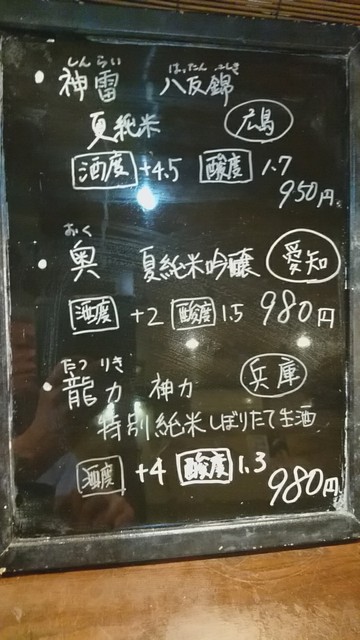 しんらい はったんにしき
神雷 八反錦
夏純米 広島
酒度 +4.5 酸度 1.7
950円
おく
奥 夏純米吟醸 愛知
酒度 +2 酸度 1.5 980円
たつ りき
龍力 神力 兵庫
特別純米しぼりたて生酒
酒度 +4 酸度 1.3
980円